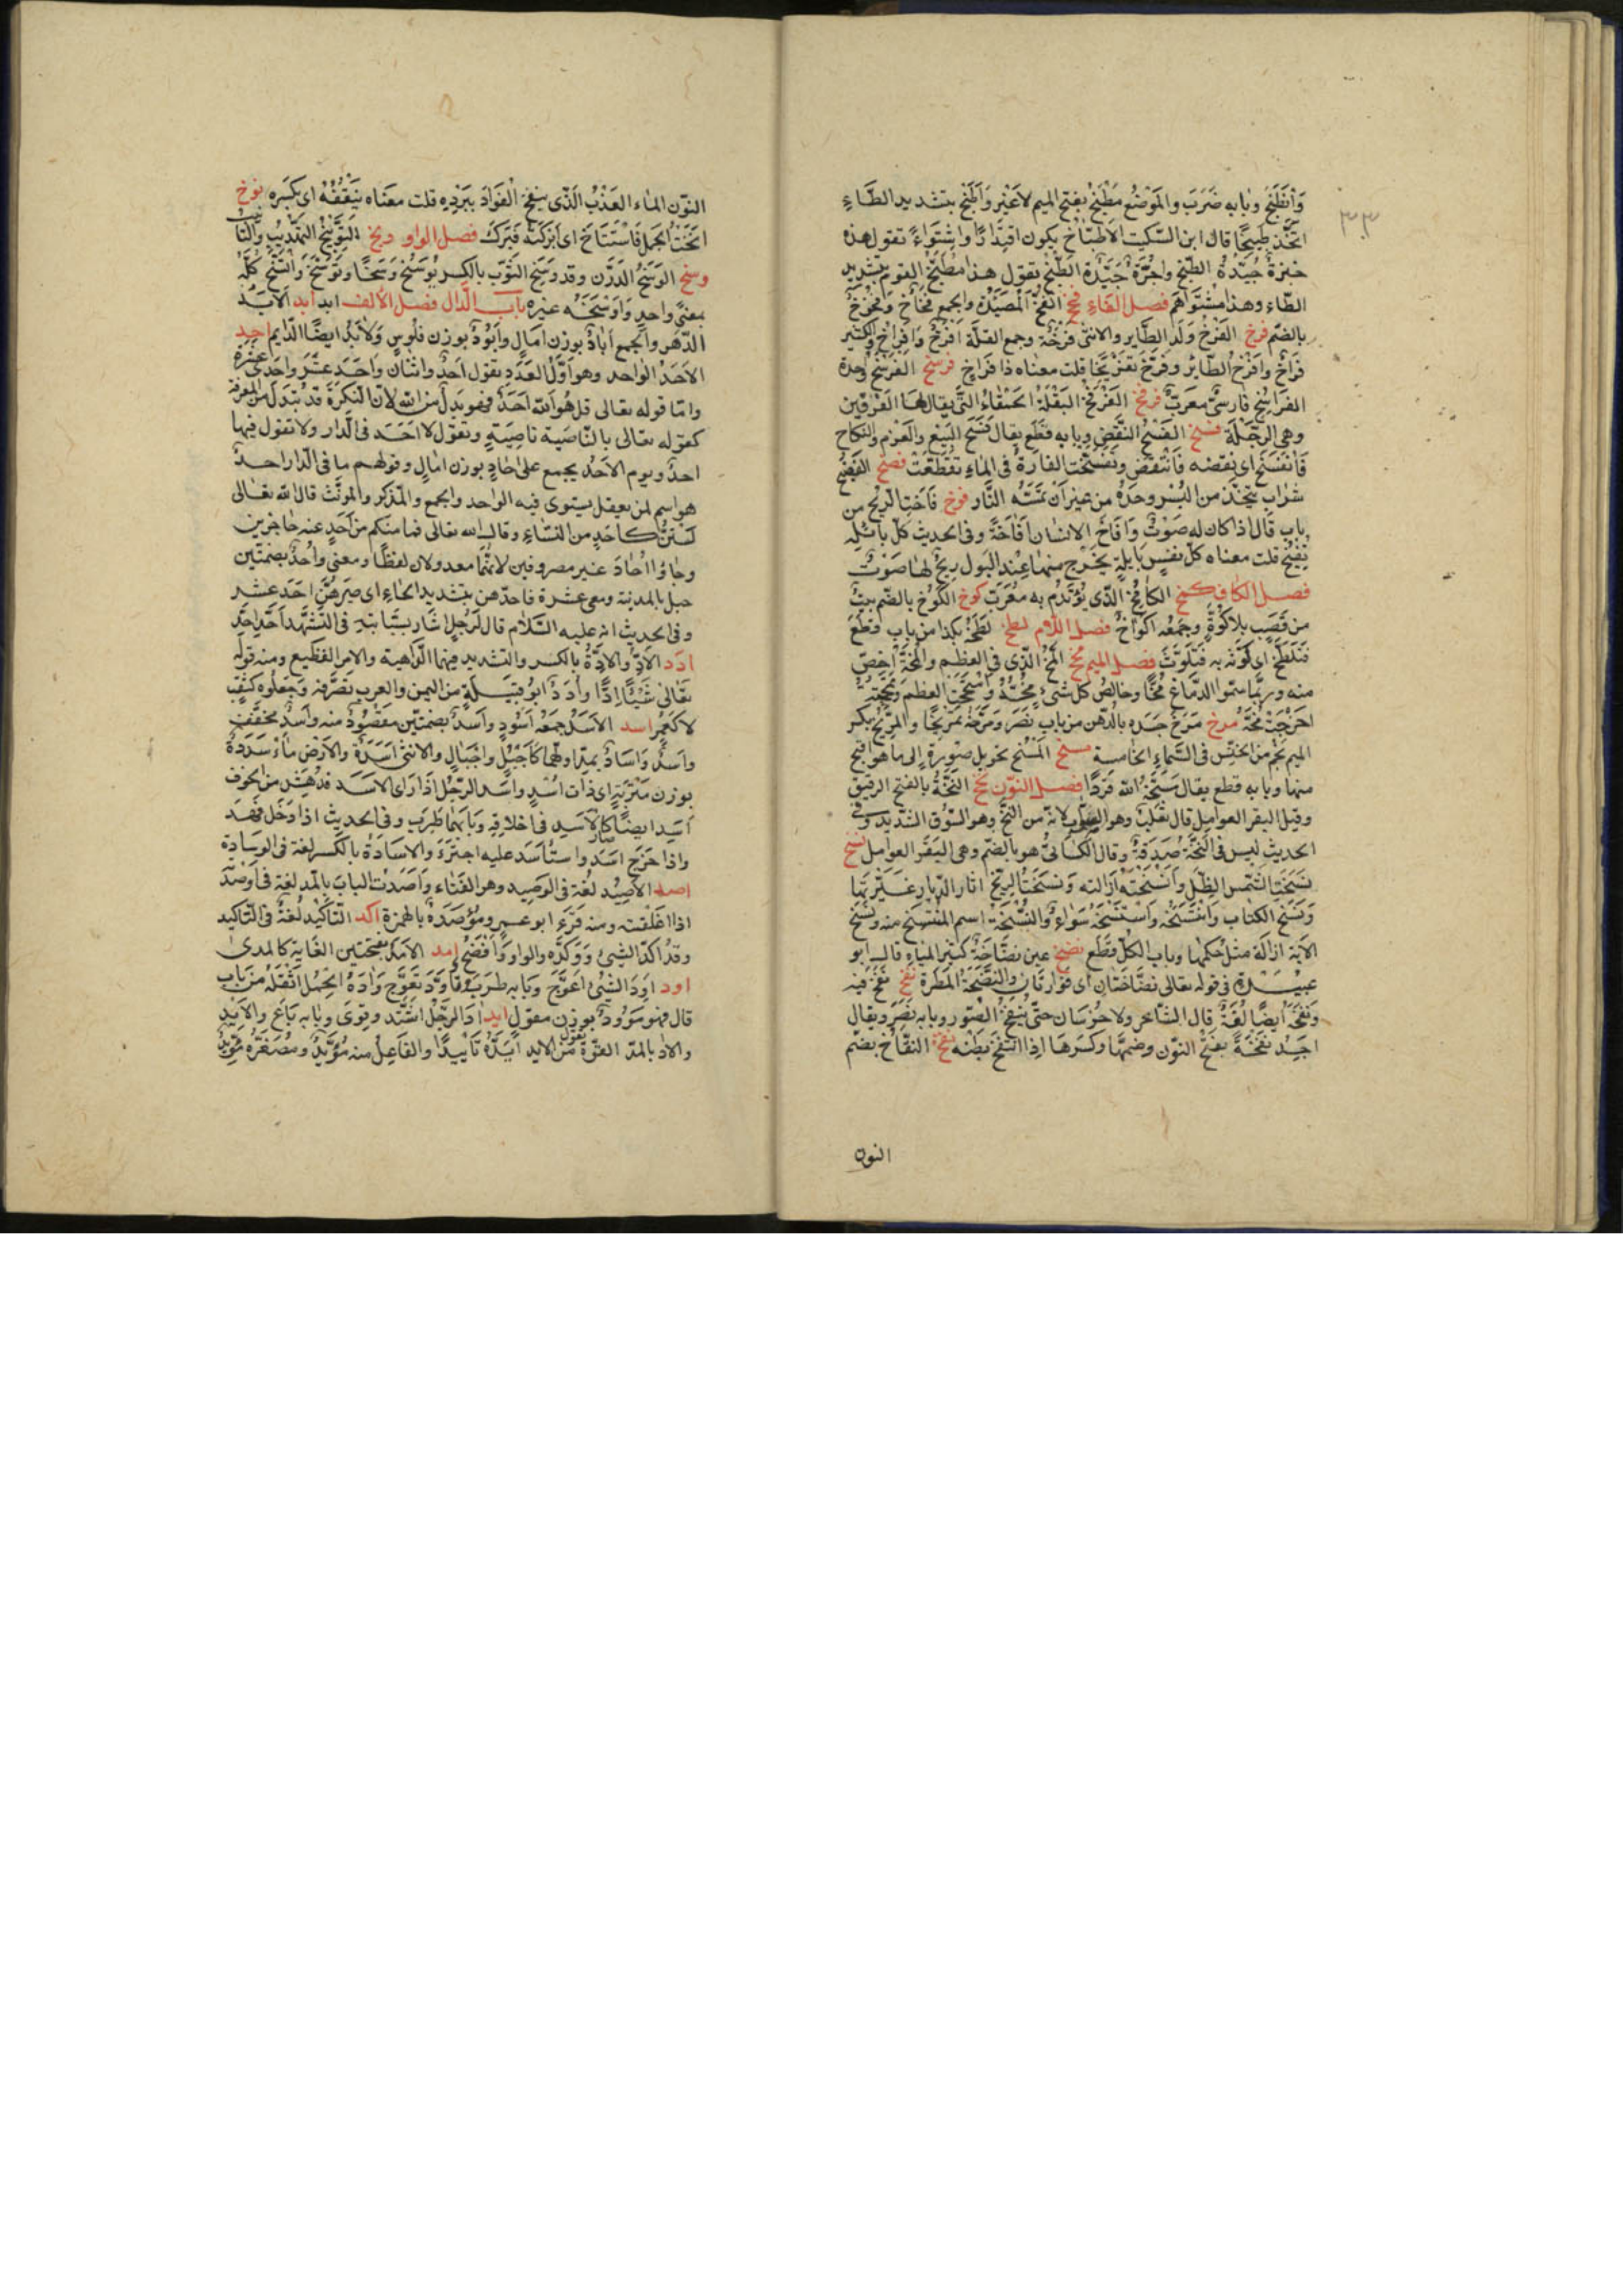 وَانْطَبَخَ وبابه ضَرَبَ والمَوْضِع مَطْبَخ بفتح الميم لاغير وَاَطَّبَخَ بتشديد الطَّاءِ
اتَّخَذ طَبِيخًا قال ابن السّكيت الاطّبَاخُ يكون اقتِدَارًا واشتِوَاءً تقول هذه
خبزة جَيّدة الطّبخ واجُرَّة جَيِّدة الطّبخ بقول هذا مُطَّبَخُ القوم بتشديد
الطّاء وهذا مُشْتَوَاهُم فصل الفاء فخ الفَخُّ المَصيدَة والجمع فِخَاخ وفُخُوخ
بالضّم فرخ الفَرْخ وَلَد الطَّاير والانثى فرخَة وجمع القلّة اَفْرُخ واَفْرَاخ والكثير
فِرَاخ وَافْرَخ الطّائرُ وفَرَّخ تفريخًا قلت معناه ذا فِرَاخٍ فرسخ الفَرْسَخُ وَاحِدة
الفَرَاسِخ فارسىّ معرب فرفخ الفَرْفَخُ البَقْلَة الحَمْقَاءُ الّتى يقال لها الفَرْفِين
وهى الرِّجْلَة فسخ الفَسْخُ النَّقْض وبابه قَطَع يقال فَسَخَ البَيْعَ والعَزْمَ والنكاح
فَانْفَسَخ اى نقضه فَانْتَقَضَ وتَفَسَّخَت الفارةُ فى الماءِ تقَطَّعَتْ فضخ الفَضِيخ
شراب يتّخذ من البُسْر وحدَهُ من غير اَنْ تَمَسَّهُ النَّار فوخ فَاخَتِ الرّيح من
باب قَالَ اذا كان له صَوْتٌ وَافَاخَ الانسان اَفَاخَةً وفى الحديث كلّ بائلة
تُفِيخُ قلت معناه كل نفسٍ بايلة يخرج منها عِنْد البَول رِيحٌ لها صَوْتٌ
فصل الكاف كمخ الكامَخُ الّذى يُؤْتَدَم به مُعَرَّبٌ كوخ الكُوخ بالضّم بيتٌ
من قَصَبٍ بلا كُوّةٍ وجمعه اكوَاخٌ فصل اللّام لطخ لطخَهُ بكذا من باب قطَعَ
فَتَلَطَّخَ اى لَوَّثه به فَتَلَوَّثَ فصل الميم مخ المُخُّ الّذى فى العظم والمُخَّةُ اَخصُّ
منه وربّما سمّوا الدّماغ مُخًّا وخالصُ كل شىءٍ مُخُّهُ
اخرَجْتَ مُخَّهُ مرخ مَرَخَ جَسَدَه بالدّهن من باب نَصَرَ ومَرَّخَهُ تَمْرِيخًا والمِرِّيخُ بكسر
الميم نجم من الخنّس فى السّماءِ الخامسة مسخ المَسْخ تحويل صورةٍ الى ما هو اقبح
منها وبابه قطع يقال مَسَخَهُ الله قِردًا فصل النّون نخ النَّخَّةُ بالفتح الرقيق
وقيل البقر العوامل قال ثعلب وهو الصواب لانّه من النَّخّ وهو السَّوْق الشّديد وفى
الحديث ليس فى النَّخَّة صَدَقة وقال الكسائىّ هو بالضّم وهى البَقَر العوامل نسخ
نسَخَت الشّمس الظِّلّ وانْتَسَخَتْه اَزالته ونسخَت الرّيح اثار الدّيار غَيَّرتها
ونسَخ الكتاب وانتَسَخَهُ واستَنْسَخَهُ سَوَاءٌ والنُّسْخَة اسم المُنْتَسَخ منه ونَسْخ
الاية ازالَة مثل حُكمها وباب الكلّ قَطَع نضخ عين نضّاخَةٌ كثيرة المياه قال ابو
عبيدة فى قوله تعالى نضَّاخَتَانِ اى فوّارتان والنَّضْخَةُ المَطْرَة نفخ نفَخَ فيه
وَنَفَخَهُ ايضًا لُغَةٌ قال الشّاعر ولا خُرَسَان حتّى يُنفَخَ الصُّور وبابه نَصَرَ ويقال
اجِدُ نُفْخَةً بفتح النّون وضمّها وكسرها اذا انتَفَخَ بَطْنُه نقخ النُّقَاخُ بضم
النون
٣٣
النّون الماء العَذْبُ الّذى ينقَخ الفؤادَ ببَرْدِه قلت معناه يَنْقُفُهُ اى يكسِره نوخ
اَنَخْتُ الجَمَلَ فَاسْتَنَاخَ اى ابْرَكتُه فَبَرَكَ فصل الواو وبخ التَّوْبِيخُ التهديد والتأنيب
وسخ الوَسَخُ الدَرَن وقد وَسِخَ الثّوب بالكسر يَوْسَخُ وَسَخًا وتَوَسَّخَ وَاتَّسَخَ كلّه
بمعنىً واحد واَوسَخَه غيره باب الدّال فصل الألف ابد ابد الاَبَدُ
الدّهر والجمع آباد بوزن آمَال واُبُود بوزن فلُوسٍ والاَبَدُ ايضًا الدّايم احد
الاَحَدُ الواحد وهو اوّلُ العَدَد تقول اَحَدٌ واثنان واَحَدَ عَشَر واِحدَى عَشْرَة
وامّا قوله تعالى قل هُو الله اَحَدٌ فهو بَدلٌ من الله لانّ النّكِرَة قد تُبْدَل من المعرفة
كقوله تعالى بالنّاصَية ناصِيَةٍ وتقول لا اَحَد فى الدّار ولا تقول فيها
احدٌ ويوم الاَحَد يجمع على اٰحَادٍ بوزن امالٍ وقولهم ما فى الدّار احدٌ
هو اسم لمن يعقل يستوى فيه الواحد والجمع والمذكر والمونّث قال الله تعالى
لَسْتُنَّ كأحَدٍ من النّساءِ وقال الله تعالى فما منكم من اَحَدٍ عنه حاجزين
وجاوُا اُحَادَ غير مصروفين لانّهما معدولان لفظًا ومعنى واُحُدٌ بضمّتين
جبل بالمدينة ومعى عشرة فاحّدهنّ بتشديد الحاءِ اى صَيِّرهُنّ اَحَدَ عشر
وفى الحديث انه عليه السّلام قال لرَجُلٍ اشار بسَبّابتيه فى التّشَهُّد اَحِّد اَحِّد
ادد الاِدّ والاِدَّةُ بالكسر والتشديد فيهما الدّاهية والامر الفظيع ومنه قوله
تعالى شَيْئًا اِدًّا واُدَد ابو قبيلةٍ من اليمن والعرب تَصْرِفه وجَعلوه كثُقَبٍ
لا كعُمَر اسد الاَسَد جمعه اُسُود واُسُد بضمّتين مَقْصُورٌ منه واُسْدٌ مخفّف
واٰسُدٌ وَاٰسَادٌ بمدّ اوّلهما كاَجْبُلٍ واَجْبَالٍ والانثى اَسَدَة والاَرض مأسَدَة
بوزن مَتْرَبَةٍ اى ذات اُسُدٍ واَسِدَ الرّجُل اذا راى الاَسَد فدُهِشَ من الخوف
اَسِدَ ايضًا صار كالاَسَد فى اخلاقه وبابهما طَرِبَ وفى الحديث اذا دَخَل فَهِدَ
واذا خَرَجَ اَسِدَ واستأسَد عليه اجترَءَ والاسَادَةُ بالكسر لغة فى الوِسَادة
اصد الاَصيد لُغة فى الوَصيد وهو الفِنَاء واَصَدْتُ البابَ بالمّد لغة فى اَوصَدْتُ
اذا اغلقته ومنه قَرَءَ ابو عمرٍو مُؤصَدَة بالهمزة اكد التّاكِيد لُغةٌ فى التّاكيد
وقد اكّد الشىءَ ووَكّدَه والواو اَفْصَحُ امد الامَد بفتحتين الغاية كالمدى
اود اَوِدَ الشّىُ اعْوَجَّ وبابه طَرِبَ وتَاَوَّدَ تعَوَّج واٰدَهُ الحِمْلُ اَثقَلَه من بَاب
قال فهو مَؤُودٌ بوزن مقول ايد ادَ الرّجُل اشتَدّ وقوِىَ وبابه بَاع والاَيْد
والاٰد بالمدّ القوّة تقول مَن الايد اَيَّدَهُ تَأيِيدًا والفَاعِلُ منه مُؤَيِّدٌ ومُصَغّره